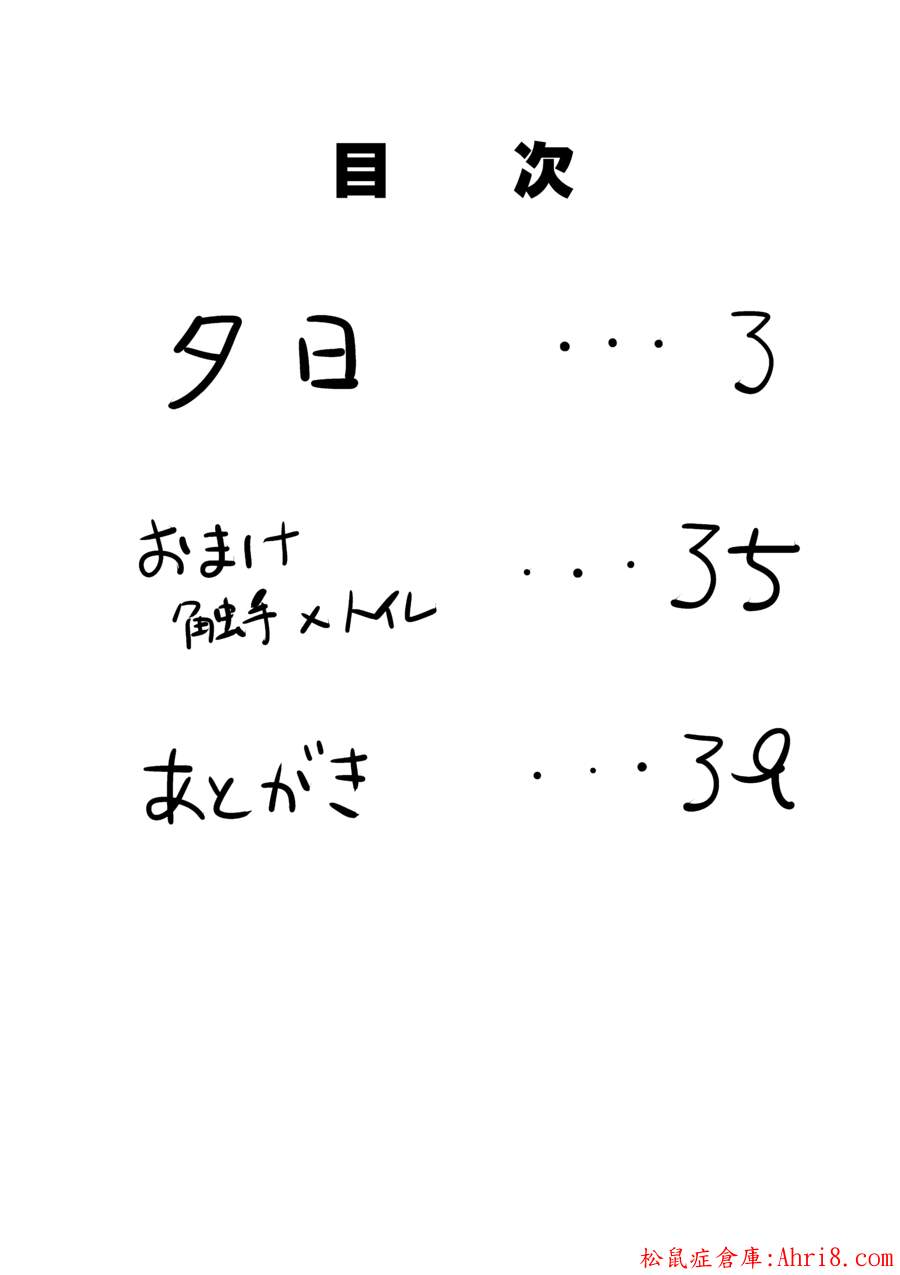 目 次
夕日 ・・・ 3
おまけ ・・・ 35
触手×トイレ
あとがき ・・・ 39
松鼠症倉庫:Ahri8.com